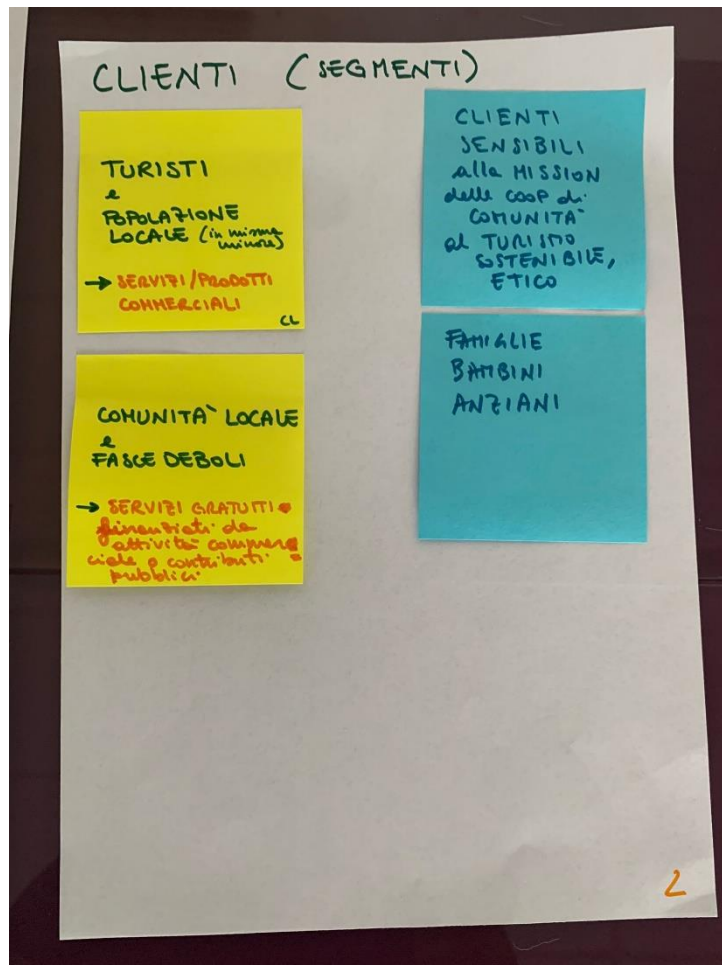 CLIENTI (SEGMENTI)
TURISTI
e
POPOLAZIONE
LOCALE (in misura
minore)
→ SERVIZI/PRODOTTI
COMMERCIALI
CL
COMUNITA` LOCALE
e
FASCE DEBOLI
→ SERVIZI GRATUITI
finanziati da
attività commer
ciale o contributi
pubblici
CLIENTI
SENSIBILI
alla MISSION
delle COOP di
COMUNITÀ
al TURISMO
SOSTENIBILE,
ETICO
FAMIGLIE
BAMBINI
ANZIANI
2